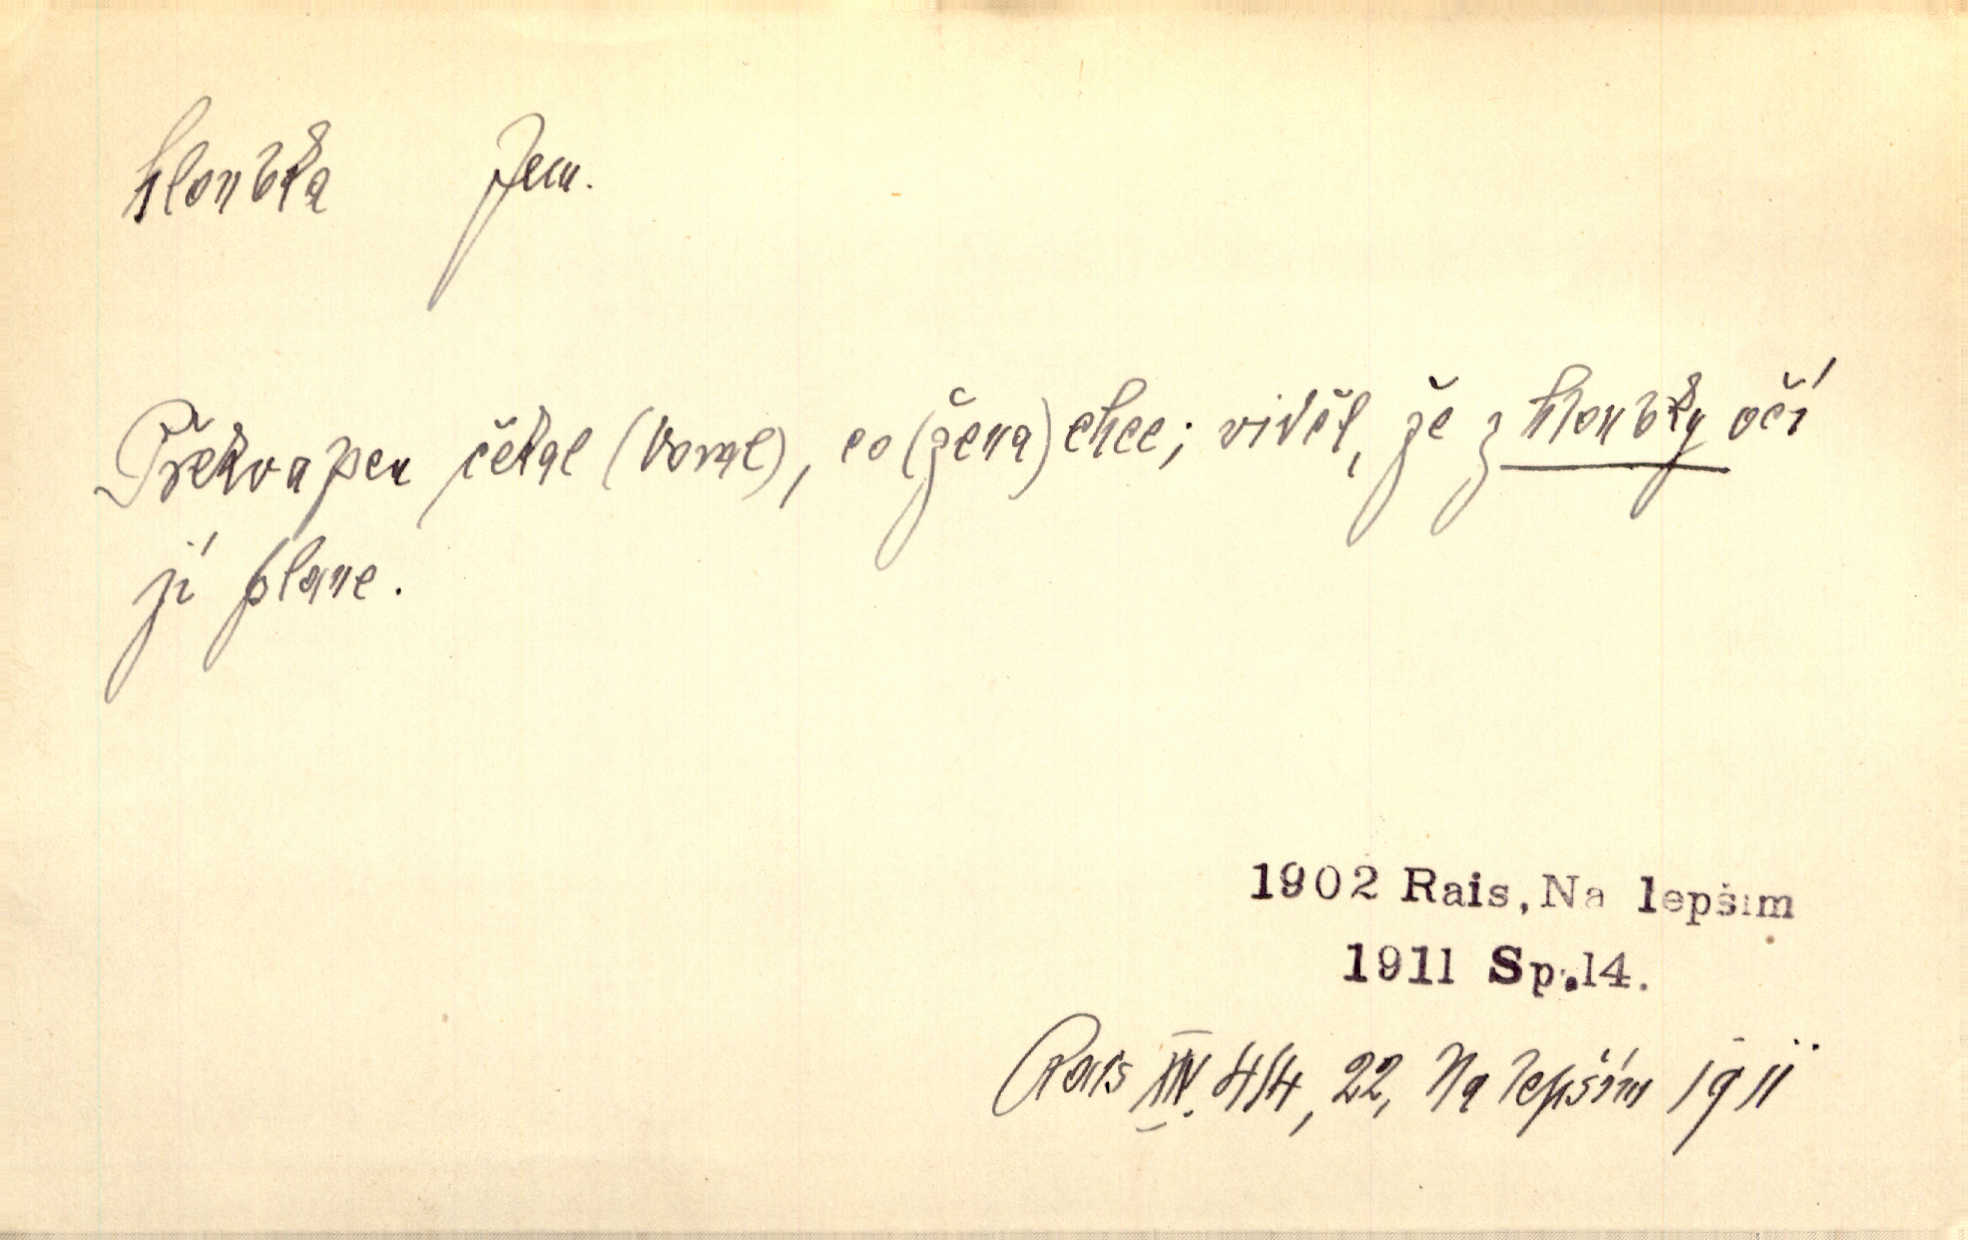 hloubka fem.
Překvapen čekal (Voral), co (žena) chce; viděl, že z hloubky očí
jí plane.
1902 Rais, Na lepším
1911 Sp.14.
Rais XIV. 414, 22, Na lepším 1911